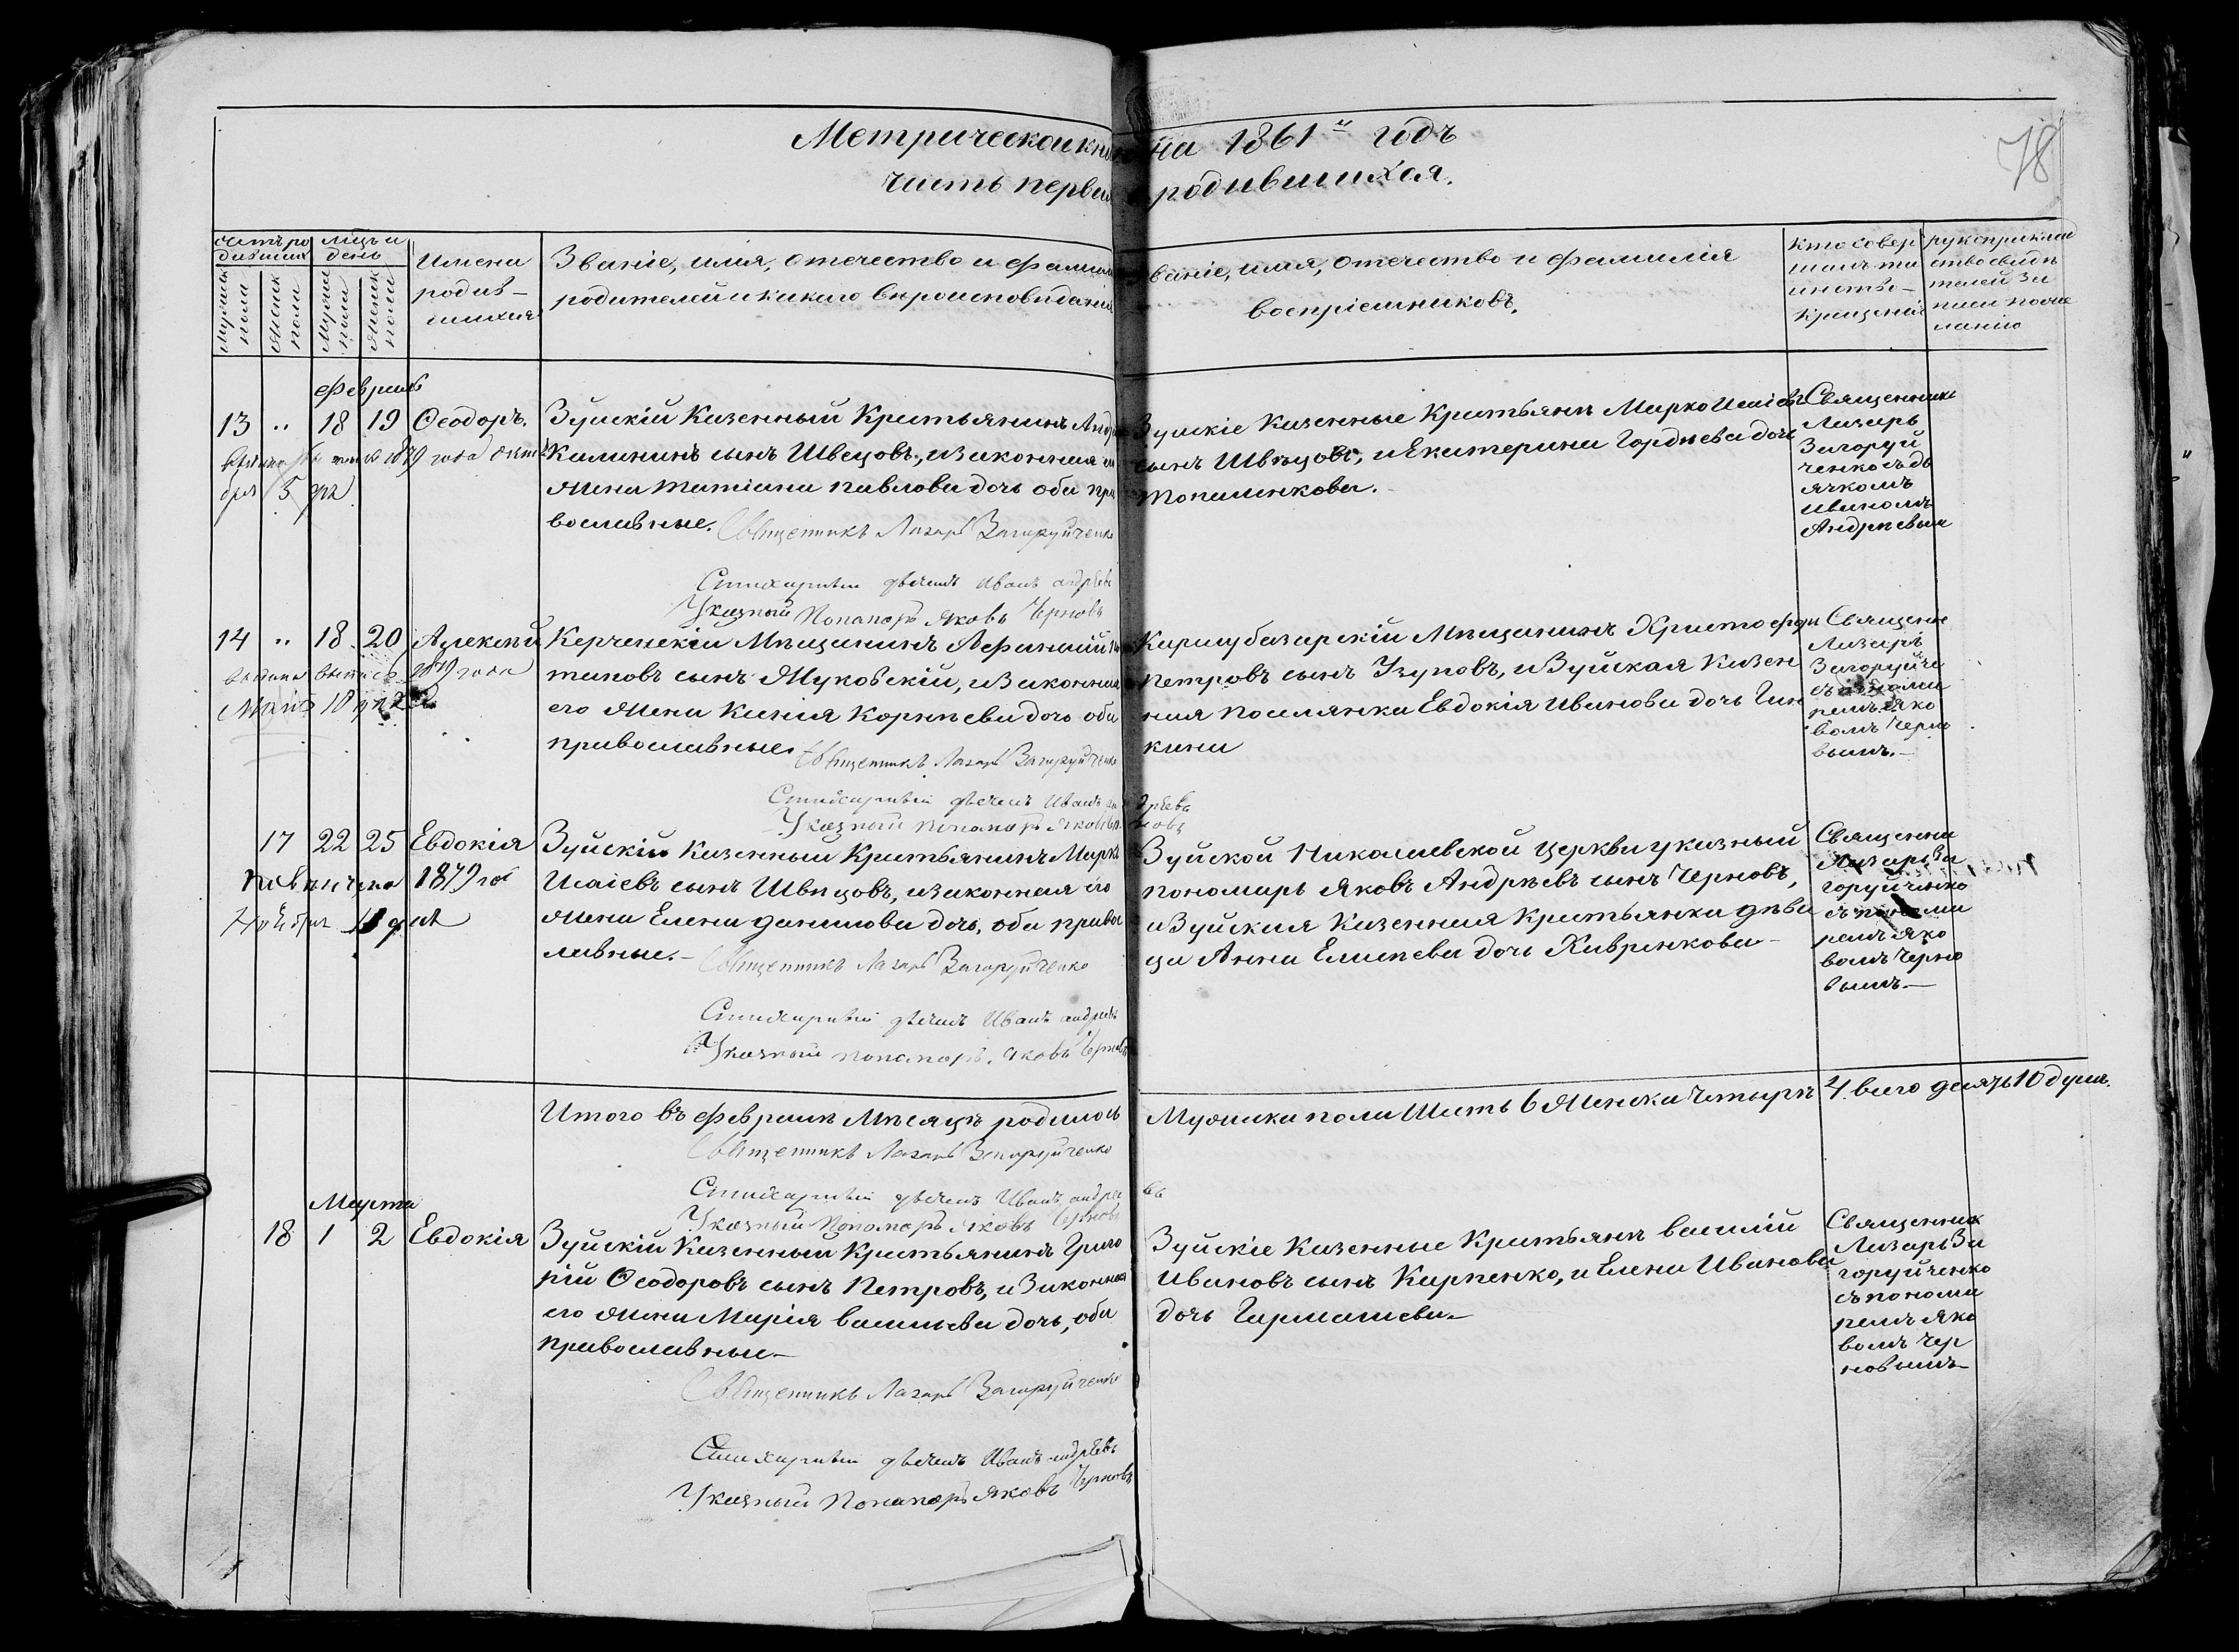 Метрической кни на 1861й годъ
78
часть первая родившихся.
Счетъ ро
дивших
Мужска
пола
Женск
пола
мцъ и
день
Мужск
пола
Женск
пола
Имена
родив-
шихся
Званіе, имя, отечество и фамилія
родителей и какого вероисповеданія
званіе, имя, отечество и фамилія
воспріемниковъ.
Кто совер
шалъ та
инство
крещенія
рукоприклад
ство свиде
телей за
писи по же
ланію
Февраль
13 " 18 19 Ѳеодоръ.
1879 года октя
бря 5 дня
Зуйскій Казенный Крестьянинъ Анд
Калининъ сынъ Швецовъ, и законная
жена Татіана павлова дочь оба пра
вославные.
Священникъ Лазарь Загоруйченко
Стихарный дьячекъ Иванъ андреевъ
Указный Понамарь Яковъ Черновъ
Зуйскіе Казенные Крестьяне Марко Исаіевъ
сынъ Швецовъ, и Екатерина Гордеева дочь
Топаленкова.
Священникъ
Лазарь
Загоруй
ченко съ дь
ячкомъ
иваномъ
Андреевым
14 " 18 20 Алексей
выдана выпись 1879 года
10 дня
Керченскій Мещанинъ Афанасій
таповъ сынъ Жуковскій, и законная
его жена Ксенія Корнеева дочь оба
православные.
Священникъ Лазарь Загоруйченко
Стихарный дьячекъ Иванъ андреевъ
Указный понамарь Яковъ Черновъ
Карасубазарскій Мещанинъ Христофоръ
петровъ сынъ Узуновъ, и Зуйская Казен
ная поселянка Евдокія Иванова дочь Ган
кина
Священник
Лазарь
Загоруйче
съ понома
ремъ Яко
вомъ Черно
вымъ.
17 22 25 Евдокія
1879 го
Ноября дня
Зуйскій Казенный Крестьянинъ Марко
Исаіевъ сынъ Швецовъ, и законная его
жена Елена данилова дочь, оба право
славные.
Священникъ Лазарь Загоруйченко
Стихарный дьячекъ Иванъ андреевъ
Указный понамарь Яковъ Черновъ
Зуйской Николаевской церкви указный
пономарь Яковъ Андреевъ сынъ Черновъ,
и Зуйская Казенная Крестьянка деви
ца Анна Елисеева дочь Хавренкова
Священни
Лазарь За
горуйченко
съ понома
ремъ Яко
вомъ Черно
вымъ.
Итого въ феврале Месяце родилось Мужска пола Шесть 6 Женска Четыре 4. всего десять 10 душъ.
Священникъ Лазарь Загоруйченко
Стихарный дьячекъ Иванъ андреевъ
Указный Пономарь Яковъ Черновъ
Марта
18 1 2 Евдокія
Зуйскій Казенный Крестьянинъ Григо
рій Ѳеодоровъ сынъ Петровъ, и Законная
его жена Марія васильева дочь, оба
православные
Священникъ Лазарь Загоруйченко
Стихарный дьячекъ Иванъ андреевъ
Указный Понамарь Яковъ Черновъ
Зуйскіе Казенные Крестьяне василій
Ивановъ сынъ Карпенко, и Елена Иванова
дочь Гармашева
Священник
Лазарь За
горуйченко
съ понома
ремъ Яко
вомъ Чер
новымъ